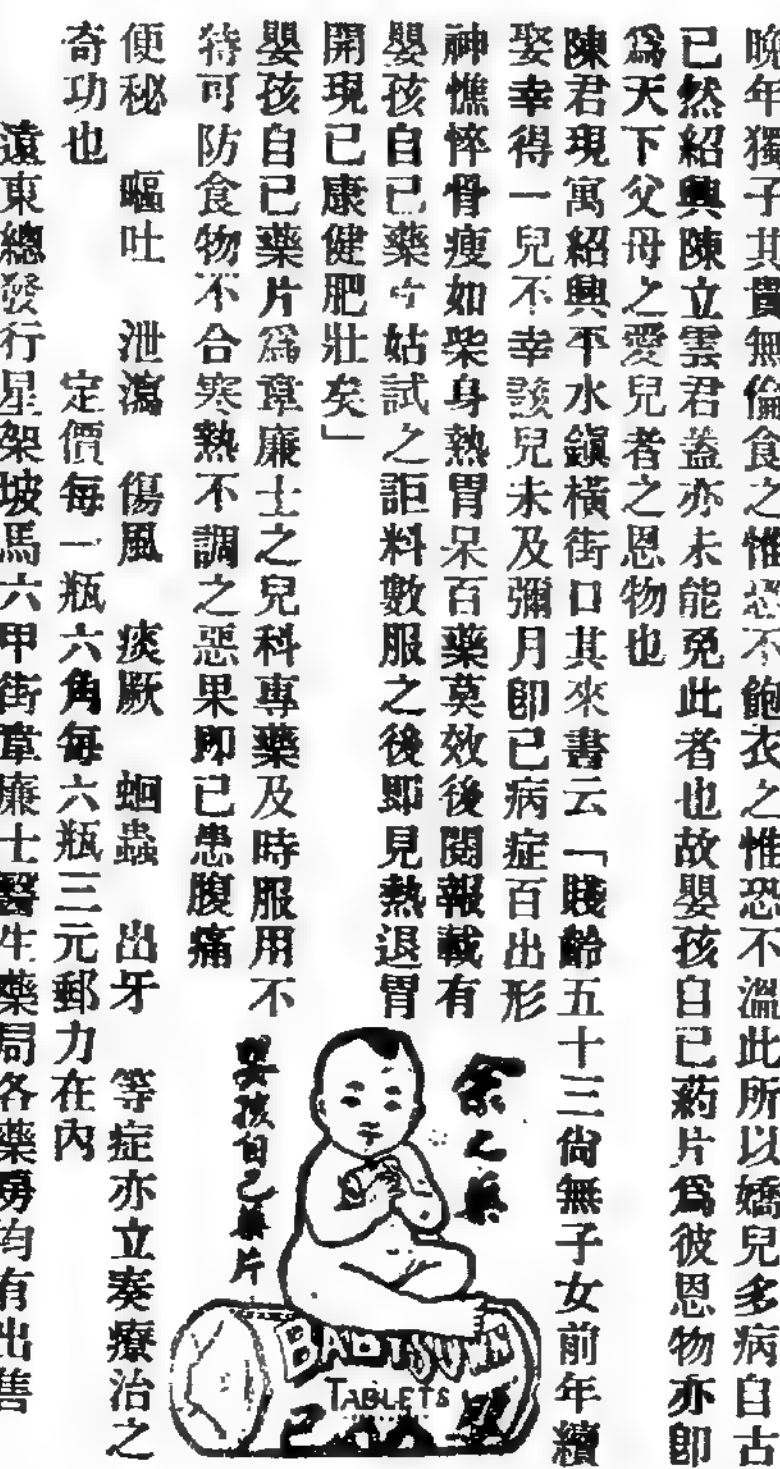 晚年獨子其貴無倫食之惟恐不飽衣之惟恐不溫此所以嬌兒多病自古
已然紹興陳立雲君蓋亦未能免此者也故嬰孩自己葯片爲彼恩物亦卽
爲天下父母之愛兒者之恩物也
陳君現寓紹興平水鎭橫街口其來書云「賤齡五十三尙無子女前年續
娶幸得一兒不幸該兒未及彌月卽已病症百出形
神憔悴骨瘦如柴身熱胃呆百藥莫效後閱報載有
嬰孩自己藥片姑試之詎料數服之後卽見熱退胃
開現已康健肥壯矣」
嬰孩自己藥片爲韋廉士之兒科專藥及時服用不
特可防食物不合寒熱不調之惡果卽已患腹痛
便秘 嘔吐 泄瀉 傷風 痰厥 蛔蟲 出牙 等症亦立奏療治之
奇功也
定價每一瓶六角每六瓶三元郵力在內
遠東總發行星架坡馬六甲街韋廉士醫生藥局各藥房均有出售
余之藥
嬰孩自己藥片
BABY'S OWN
TABLETS